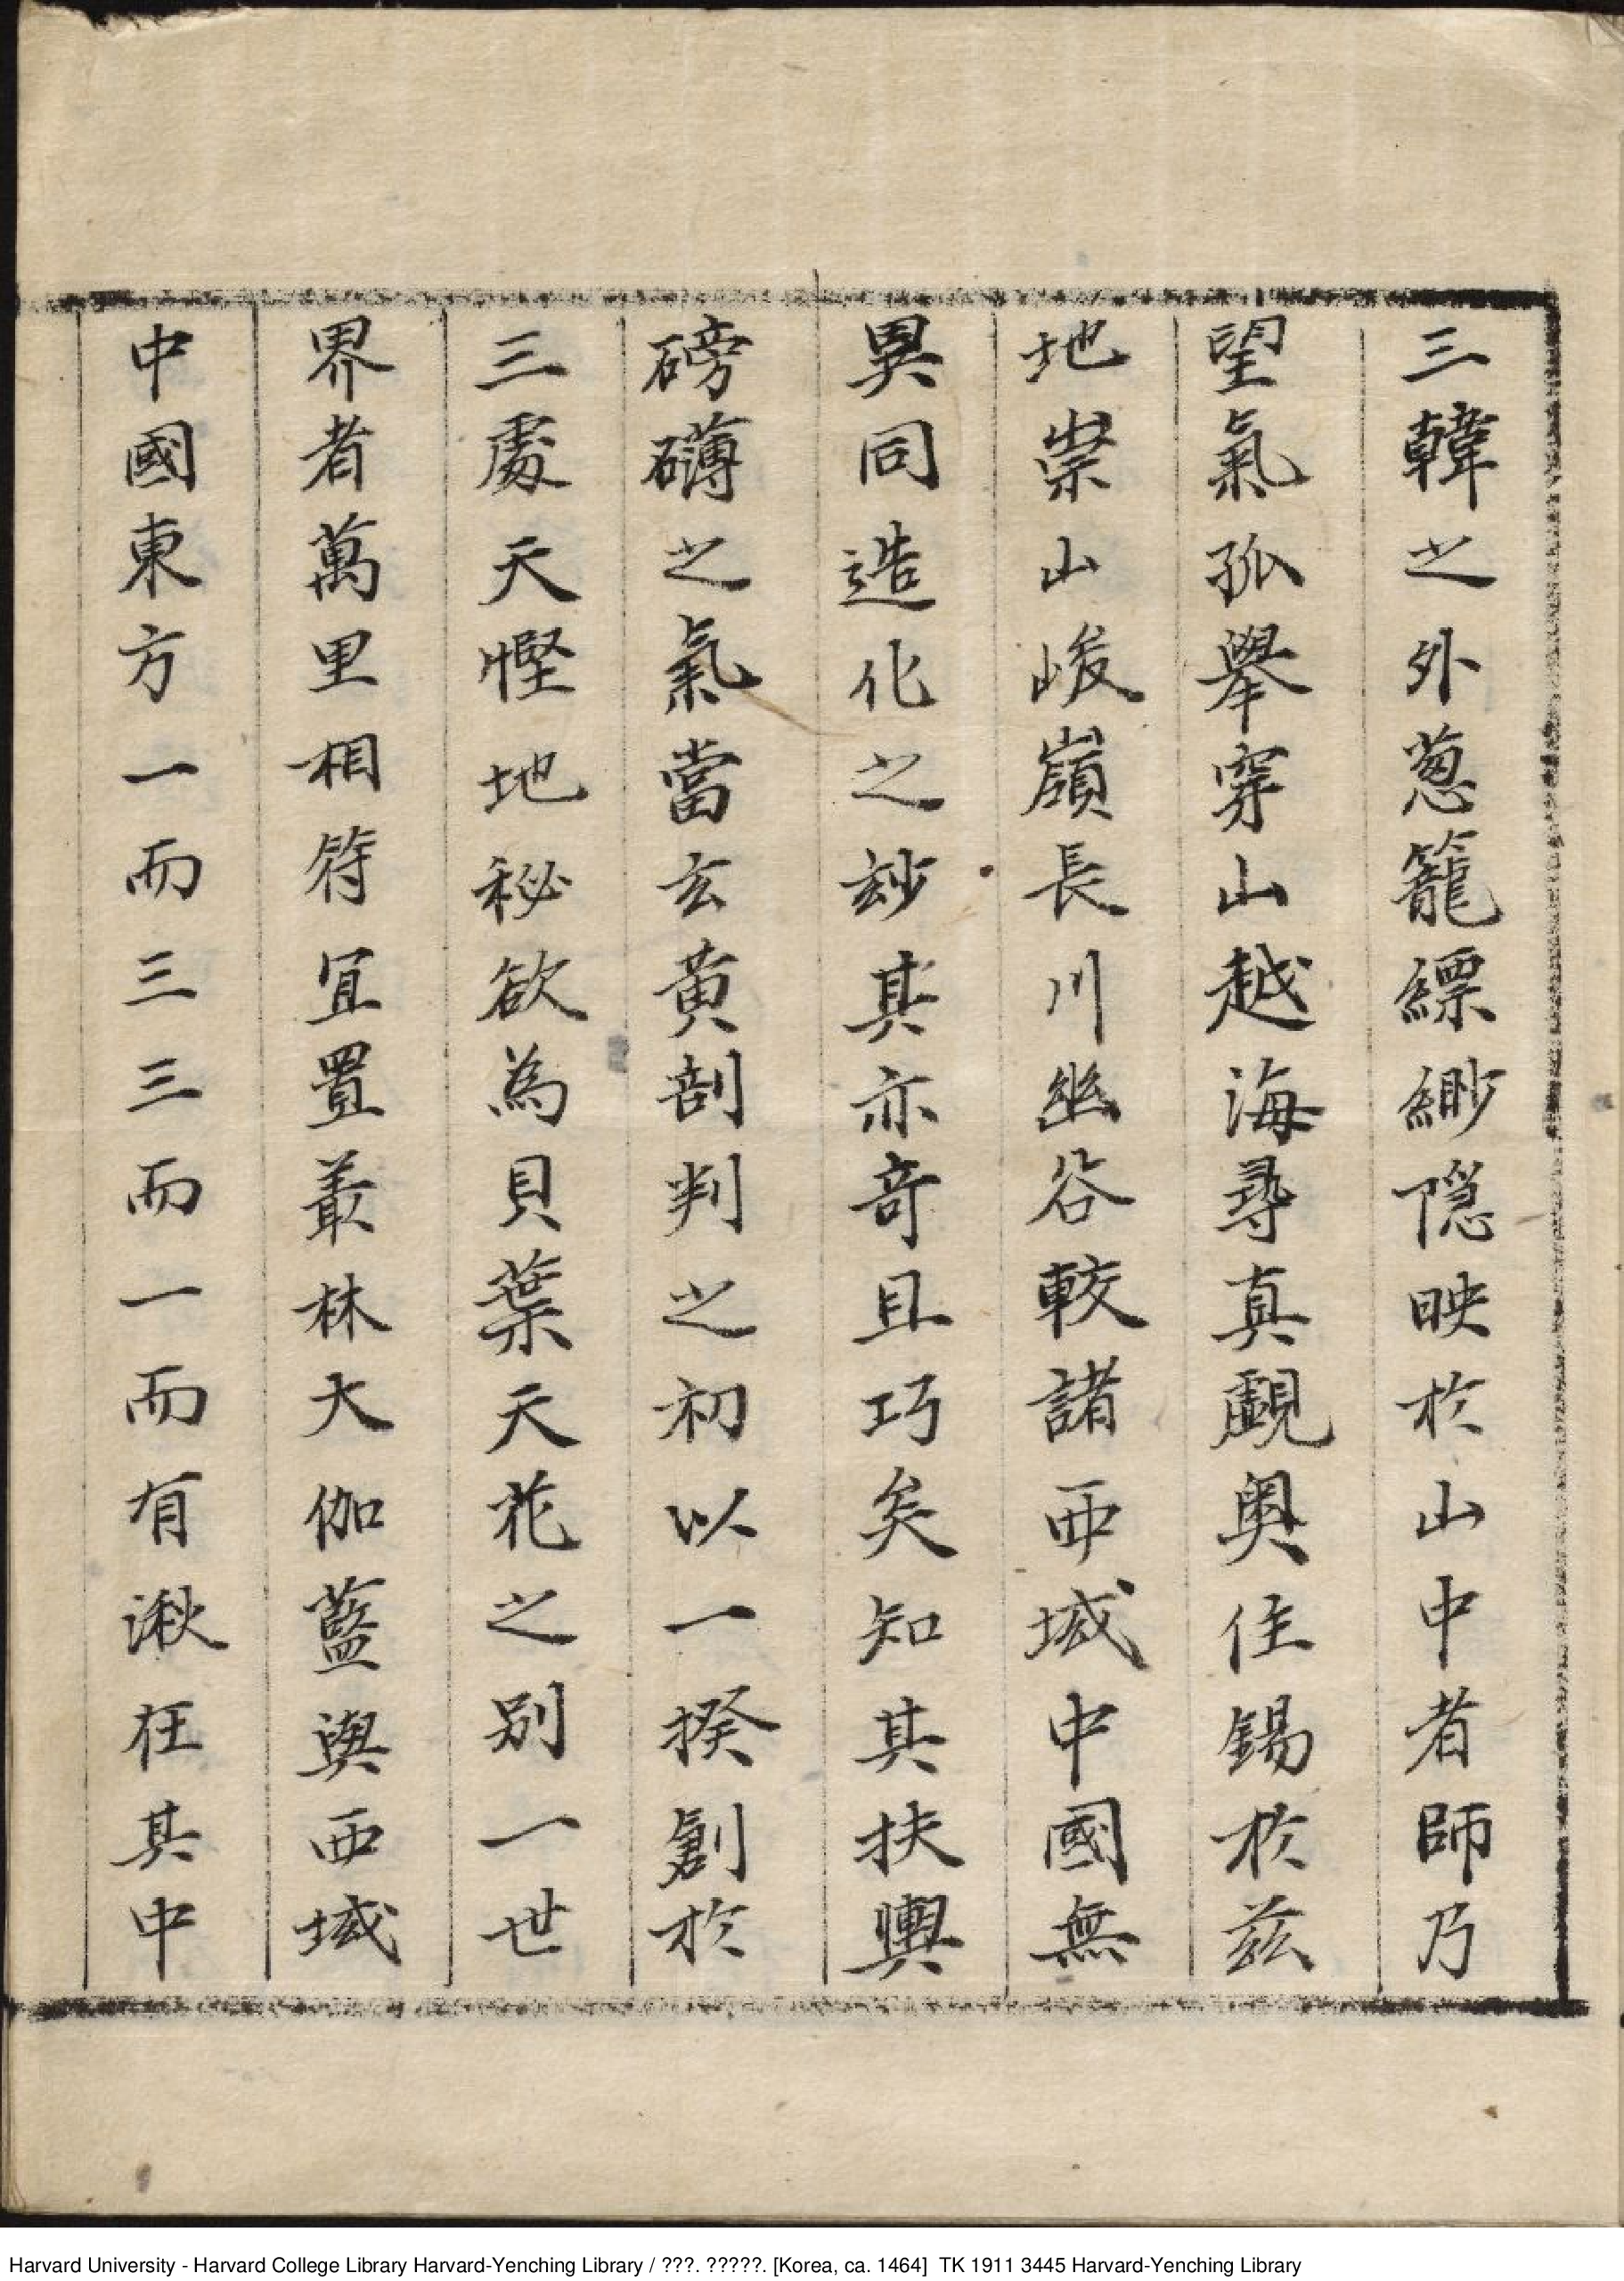 三韓之外葱籠縹緲隱映於山中者師乃
望氣孤擧穿山越海尋真覰奧住錫於茲
地崇山峻嶺長川幽谷較諸西域中國無
異同造化之玅其亦奇且巧矣知其扶輿
磅礴之氣當玄黃剖判之初以一揆創於
三處天慳地秘欲為貝葉天花之別一世
界者萬里相符宜置叢林大伽藍與西域
中國東方一而三三而一而有湫在其中
Harvard University - Harvard College Library Harvard-Yenching Library / ???. ?????. [Korea, ca. 1464] TK 1911 3445 Harvard-Yenching Library